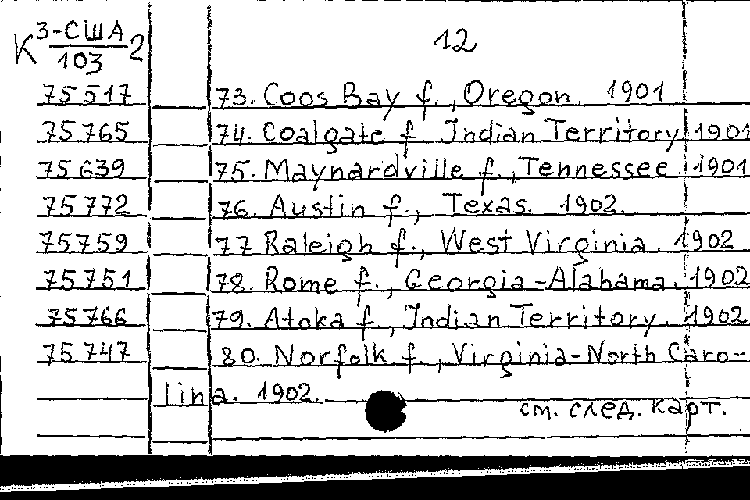 К 3-США/103 2 12
75517 73. Coos Bay f., Oregon. 1901
75765 74. Coalgate f Indian Territory 1901
75639 75. Maynardville f., Tennessee 1901
75772 76. Austin f., Texas. 1902.
75759 77 Raleigh f., West Virginia. 1902
75751 78. Rome f., Georgia-Alabama. 1902
75766 79. Atoka f., Indian Territory. 1902
75747 80. Norfolk f., Virginia-North Caro-
lina. 1902.
см. след. карт.